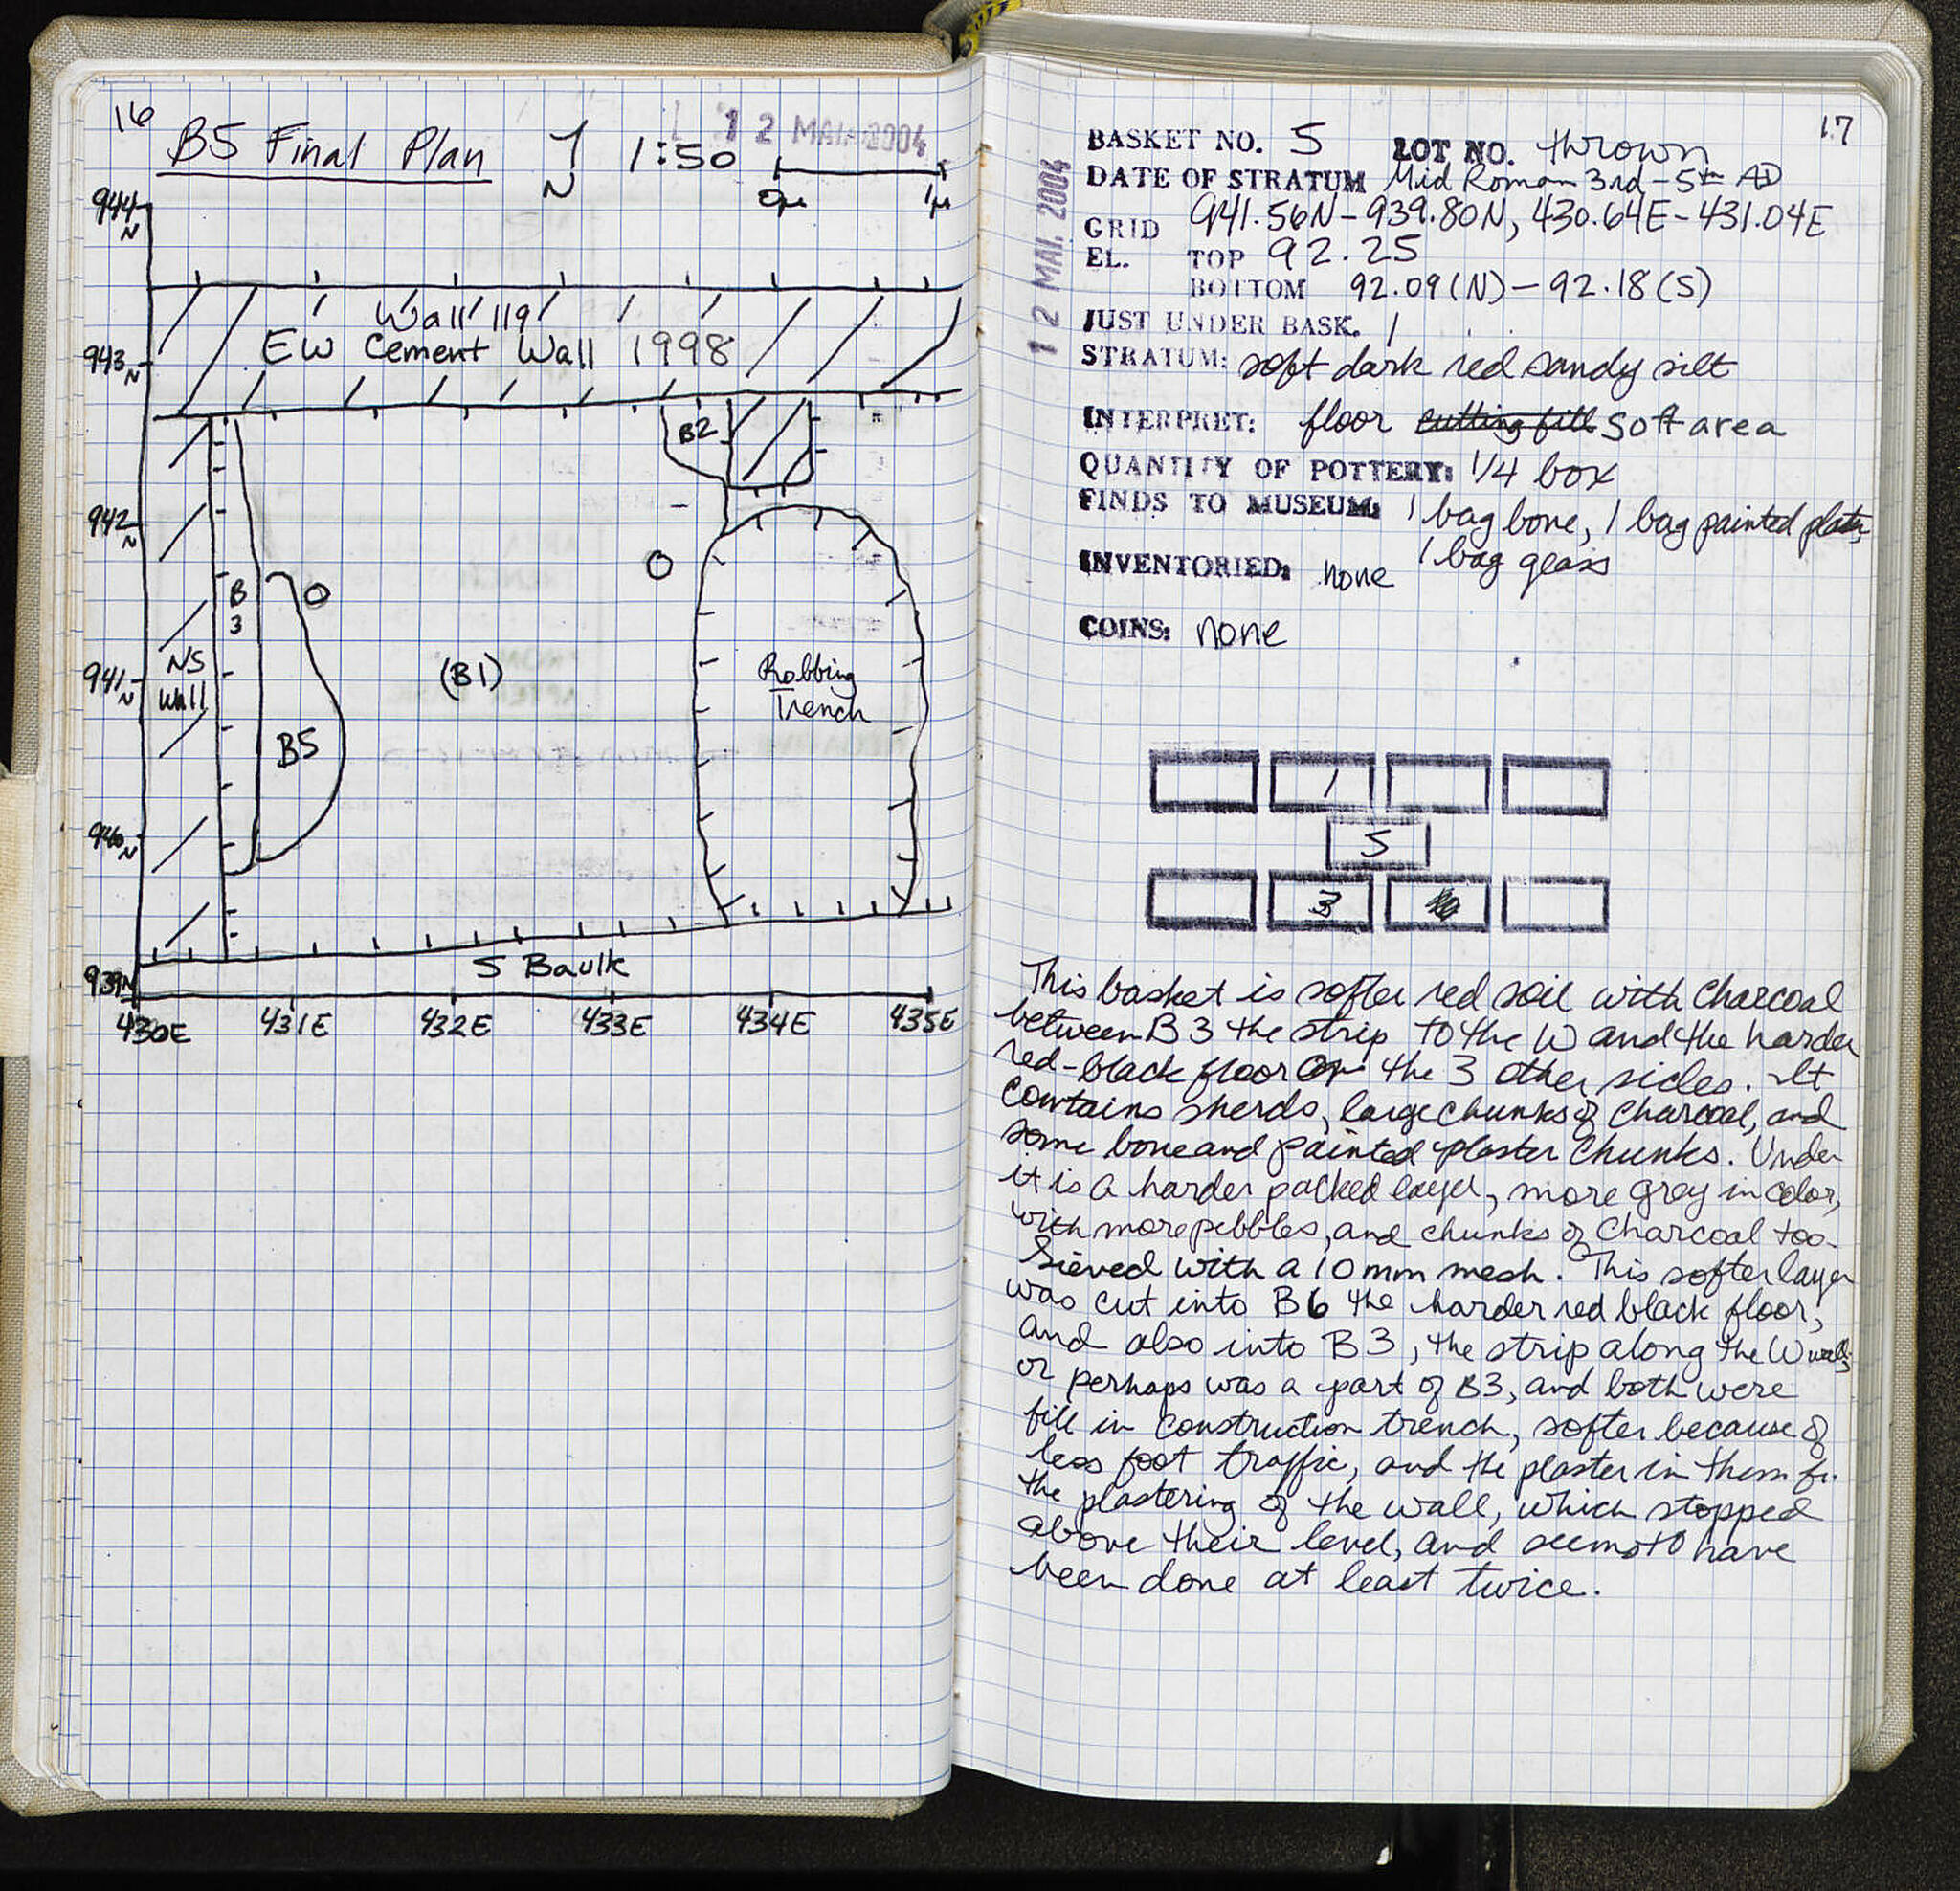 16
B5 Final Plan
N
1:50
12 MAI 2004
0m
1m
944
N
Wall 119
EW Cement Wall 1998
943
N
B2
942
N
B
3
NS
Wall
941
N
(B1)
Robbing
Trench
B5
940
N
S Baulk
939N
430E 431E 432E 433E 434E 435E
17
12 MAI. 2004
BASKET NO. 5 LOT NO. thrown
DATE OF STRATUM Mid Roman 3rd-5th AD
GRID 941.56N-939.80N, 430.64E-431.04E
EL. TOP 92.25
BOTTOM 92.09(N)-92.18(S)
JUST UNDER BASK. 1
STRATUM: soft dark red sandy silt
INTERPRET: floor cutting fill soft area
QUANTITY OF POTTERY: 1/4 box
FINDS TO MUSEUM: 1 bag bone, 1 bag painted plaster,
1 bag glass
INVENTORIED: none
COINS: none
1
5
3
This basket is softer red soil with charcoal
between B3 the strip to the W and the harder
red-black floor on the 3 other sides. It
contains sherds, large chunks of charcoal, and
some bone and painted plaster chunks. Under
it is a harder packed layer, more grey in color,
with more pebbles, and chunks of charcoal too.
Sieved with a 10mm mesh. This softer layer
was cut into B6 the harder red black floor,
and also into B3, the strip along the W wall,
or perhaps was a part of B3, and both were
fill in construction trench, softer because of
less foot traffic, and the plaster in them fr.
the plastering of the wall, which stopped
above their level, and seems to have
been done at least twice.